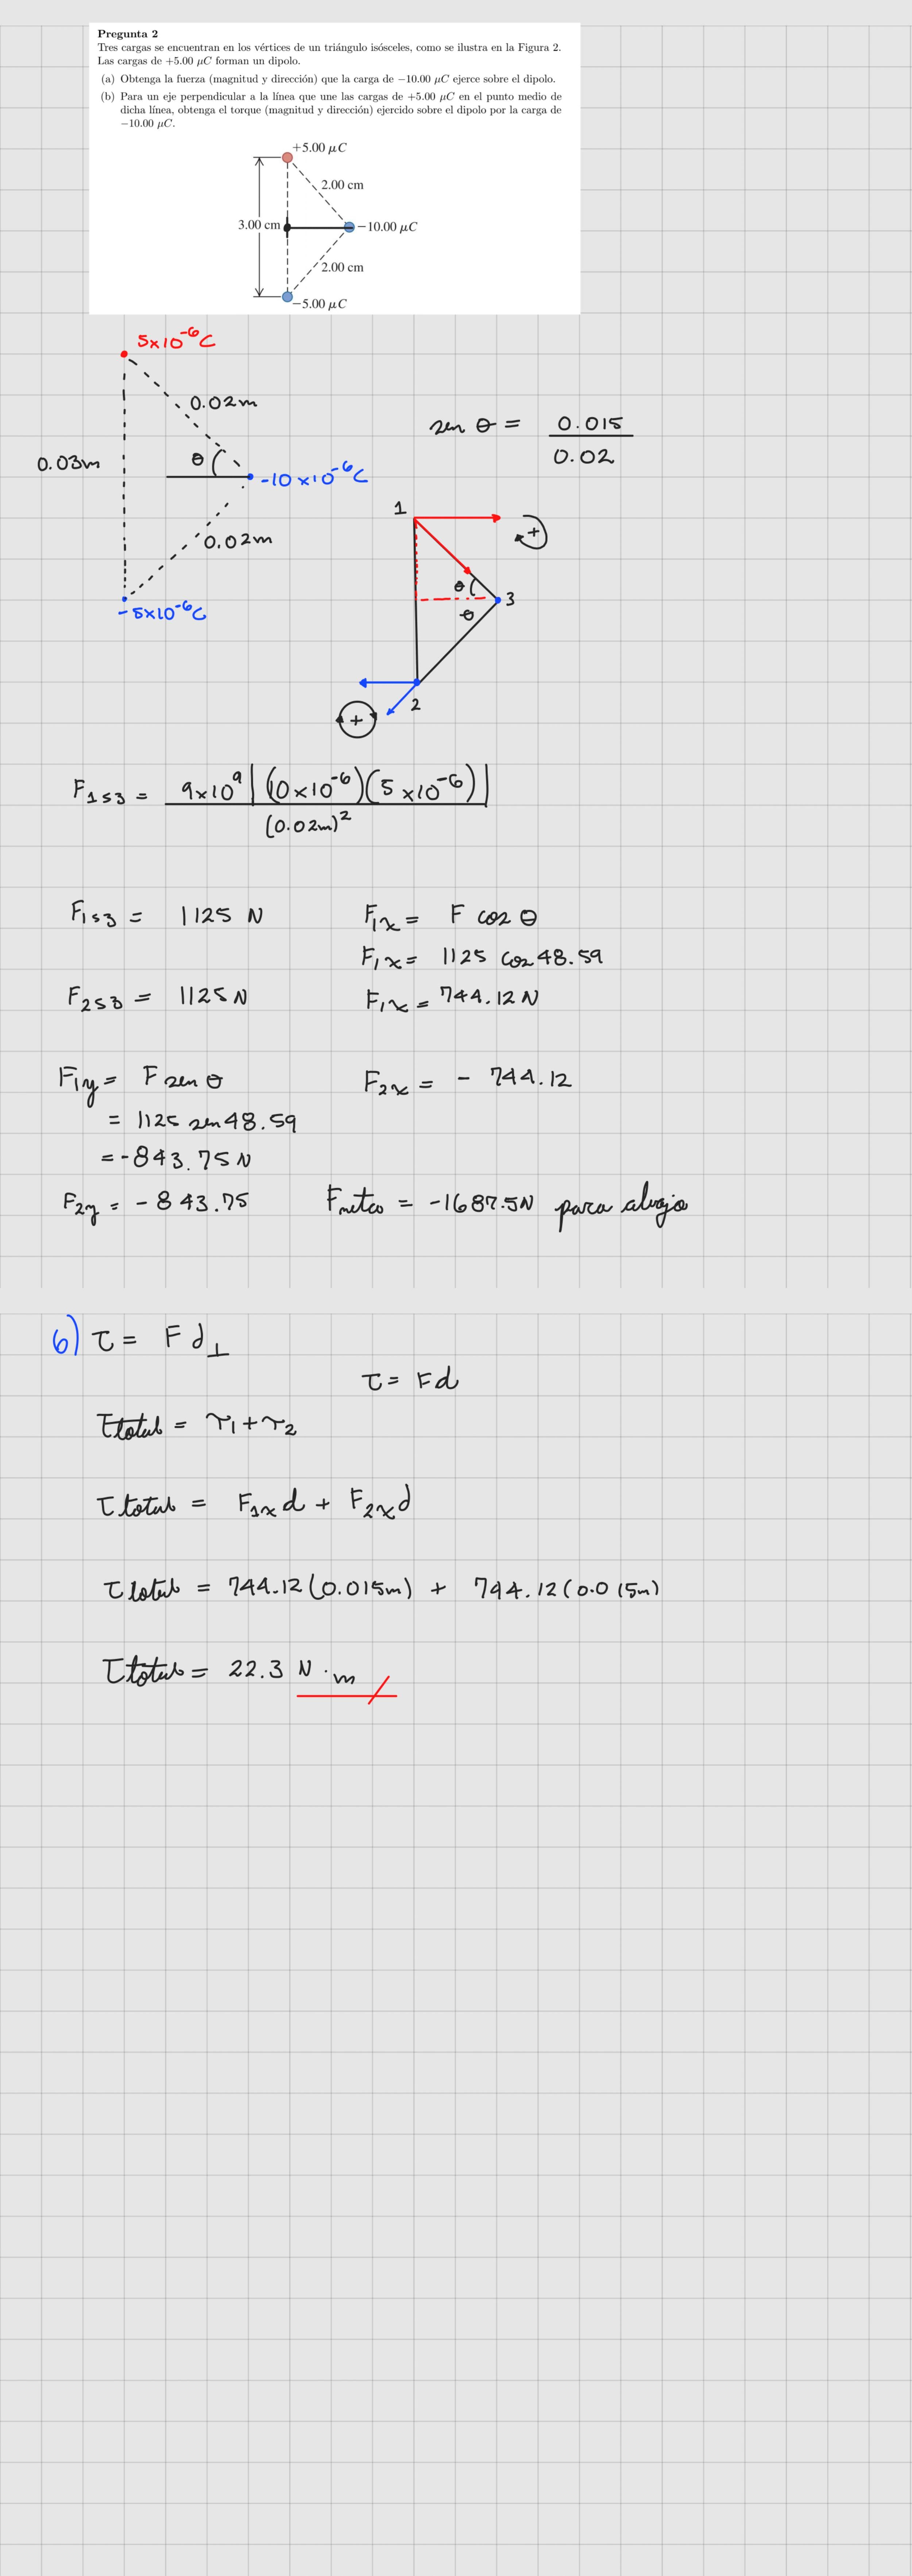 Pregunta 2
Tres cargas se encuentran en los vértices de un triángulo isósceles, como se ilustra en la Figura 2.
Las cargas de +5.00 μC forman un dipolo.
(a) Obtenga la fuerza (magnitud y dirección) que la carga de −10.00 μC ejerce sobre el dipolo.
(b) Para un eje perpendicular a la línea que une las cargas de +5.00 μC en el punto medio de
dicha línea, obtenga el torque (magnitud y dirección) ejercido sobre el dipolo por la carga de
−10.00 μC.
+5.00 μC
2.00 cm
3.00 cm
−10.00 μC
2.00 cm
−5.00 μC
5x10⁻⁶C
0.02m
sen θ = 0.015 / 0.02
0.03m
θ
-10x10⁻⁶C
0.02m
-5x10⁻⁶C
1
+
θ
3
θ
2
+
F1s3 = 9x10⁹ |(10x10⁻⁶)(5x10⁻⁶)| / (0.02m)²
F1s3 = 1125 N
F1x = F cos θ
F1x = 1125 cos 48.59
F2s3 = 1125 N
F1x = 744.12 N
F1y = F sen θ
F2x = - 744.12
= 1125 sen 48.59
= -843.75 N
F2y = - 843.75
Fneta = -1687.5N para abajo
6) τ = F d⊥
τ = Fd
τtotal = τ1 + τ2
τtotal = F1x d + F2x d
τtotal = 744.12(0.015m) + 744.12(0.015m)
τtotal = 22.3 N·m